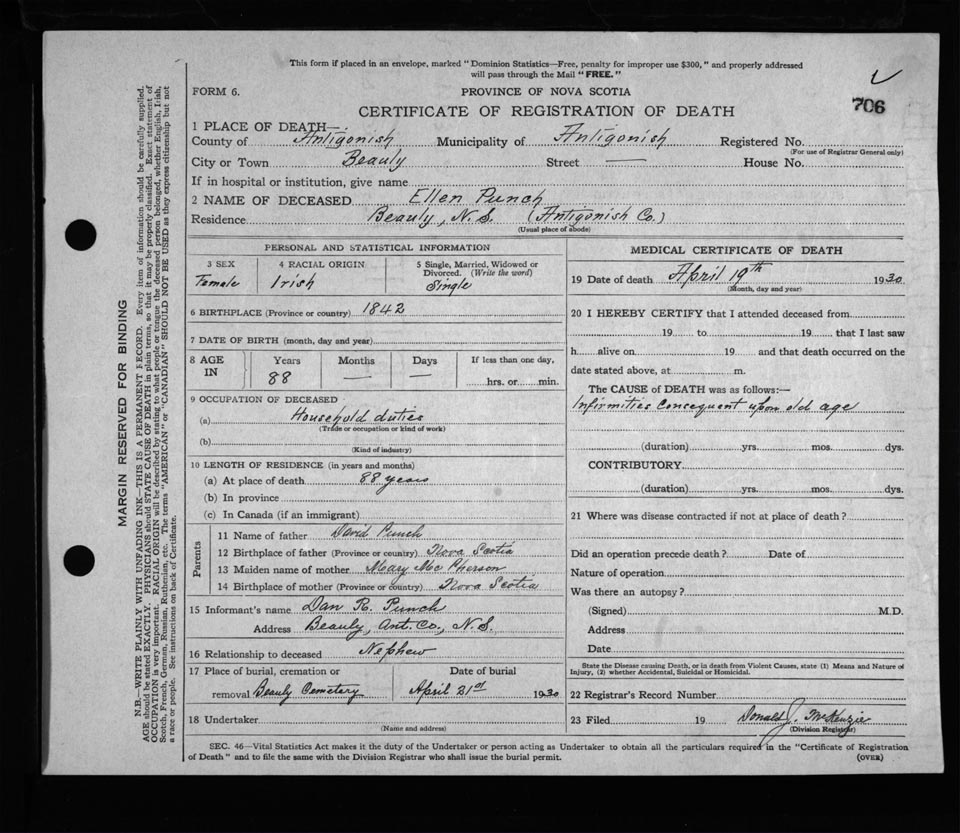 This form if placed in an envelope, marked "Dominion Statistics—Free, penalty for improper use $300," and properly addressed
will pass through the Mail "FREE."
FORM 6.
PROVINCE OF NOVA SCOTIA
CERTIFICATE OF REGISTRATION OF DEATH
706
1 PLACE OF DEATH—
County of Antigonish Municipality of Antigonish Registered No.
(For use of Registrar General only)
City or Town Beauly Street — House No.
If in hospital or institution, give name
2 NAME OF DECEASED Ellen Punch
Residence Beauly, N.S. (Antigonish Co.)
(Usual place of abode)
PERSONAL AND STATISTICAL INFORMATION
3 SEX
Female
4 RACIAL ORIGIN
Irish
5 Single, Married, Widowed or
Divorced. (Write the word)
Single
6 BIRTHPLACE (Province or country) 1842
7 DATE OF BIRTH (month, day and year)
8 AGE
IN
Years
88
Months
—
Days
—
If less than one day,
hrs. or min.
9 OCCUPATION OF DECEASED
(a) Household duties
(Trade or occupation or kind of work)
(b)
(Kind of industry)
10 LENGTH OF RESIDENCE (in years and months)
(a) At place of death 88 years
(b) In province
(c) In Canada (if an immigrant)
Parents
11 Name of father David Punch
12 Birthplace of father (Province or country) Nova Scotia
13 Maiden name of mother Mary McPherson
14 Birthplace of mother (Province or country) Nova Scotia
15 Informant's name Dan R. Punch
Address Beauly, Ant. Co., N.S.
16 Relationship to deceased Nephew
17 Place of burial, cremation or Date of burial
removal Beauly Cemetery April 21st 1930
18 Undertaker
(Name and address)
MEDICAL CERTIFICATE OF DEATH
19 Date of death April 19th 1930
(Month, day and year)
20 I HEREBY CERTIFY that I attended deceased from
19 to 19 that I last saw
h alive on 19 and that death occurred on the
date stated above, at m.
The CAUSE of DEATH was as follows:—
Infirmities Consequent upon old age
(duration) yrs. mos. dys.
CONTRIBUTORY
(duration) yrs. mos. dys.
21 Where was disease contracted if not at place of death?
Did an operation precede death? Date of
Nature of operation
Was there an autopsy?
(Signed) M.D.
Address
Date
State the Disease causing Death, or in death from Violent Causes, state (1) Means and Nature of
Injury, (2) whether Accidental, Suicidal or Homicidal.
22 Registrar's Record Number
23 Filed 19 Donald J. McKenzie
(Division Registrar)
SEC. 46—Vital Statistics Act makes it the duty of the Undertaker or person acting as Undertaker to obtain all the particulars required in the "Certificate of Registration
of Death" and to file the same with the Division Registrar who shall issue the burial permit. (OVER)
MARGIN RESERVED FOR BINDING
N.B.—WRITE PLAINLY WITH UNFADING INK—THIS IS A PERMANENT RECORD. Every item of information should be carefully supplied.
AGE should be stated EXACTLY. PHYSICIANS should STATE CAUSE OF DEATH in plain terms, so that it may be properly classified. Exact statement of
OCCUPATION is very important. RACIAL ORIGIN will be described by stating to what people or tongue the deceased person belonged, whether English, Irish,
Scotch, French, German, Russian, Ruthenian, etc. The terms "AMERICAN" or "CANADIAN" SHOULD NOT BE USED as they express citizenship but not
a race or people. See instructions on back of Certificate.